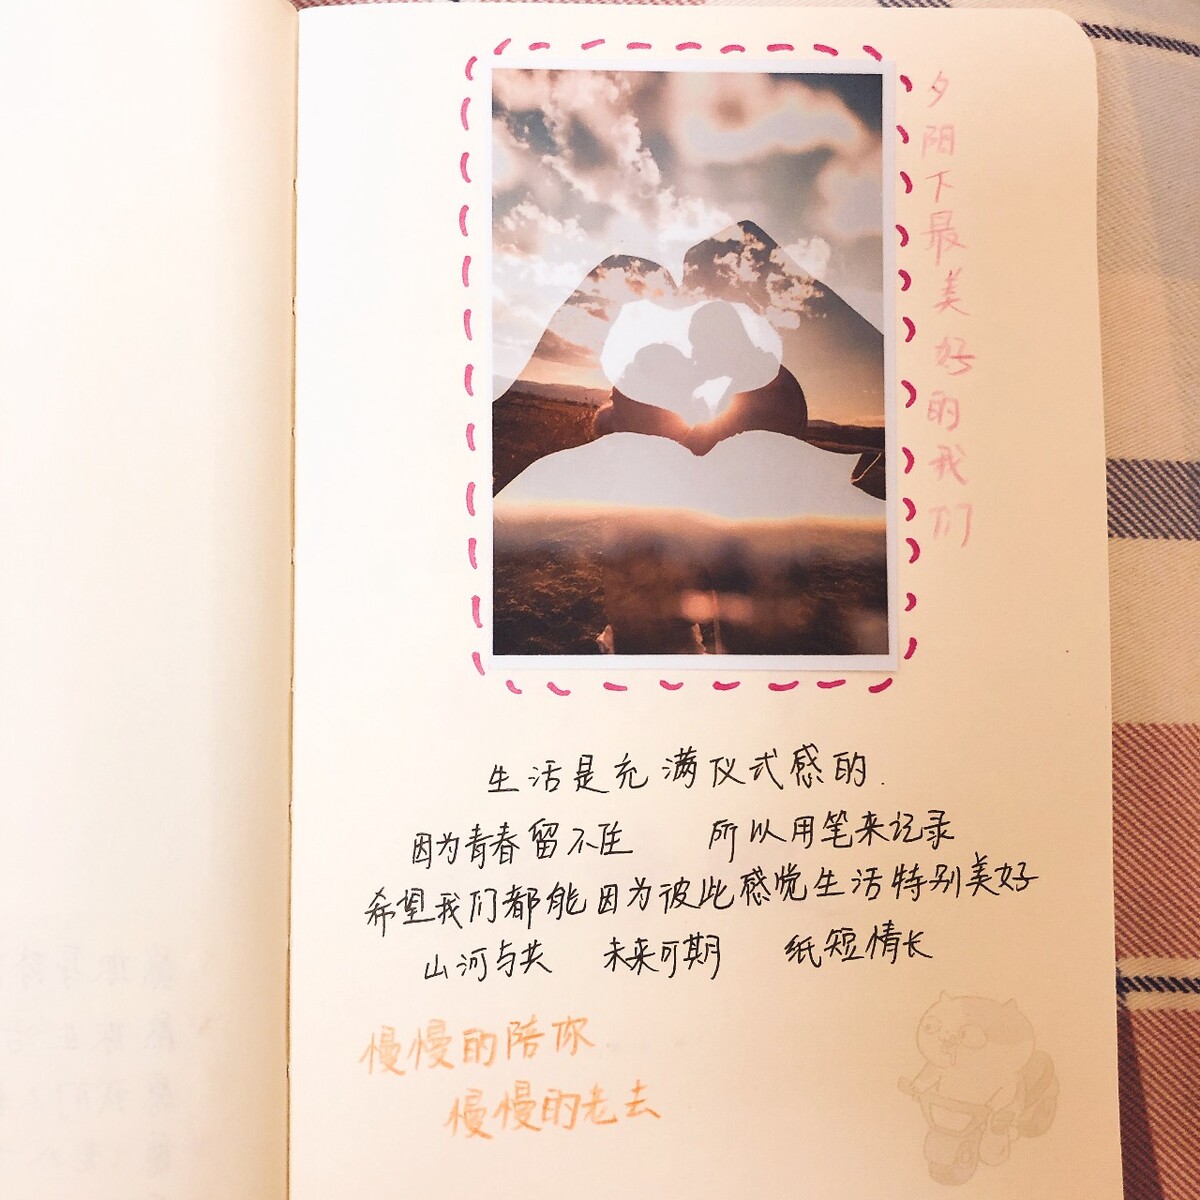 夕阳下最美好的我们
生活是充满仪式感的.
因为青春留不住 所以用笔来记录
希望我们都能因为彼此感觉生活特别美好
山河与共 未来可期 纸短情长
慢慢的陪你
慢慢的老去